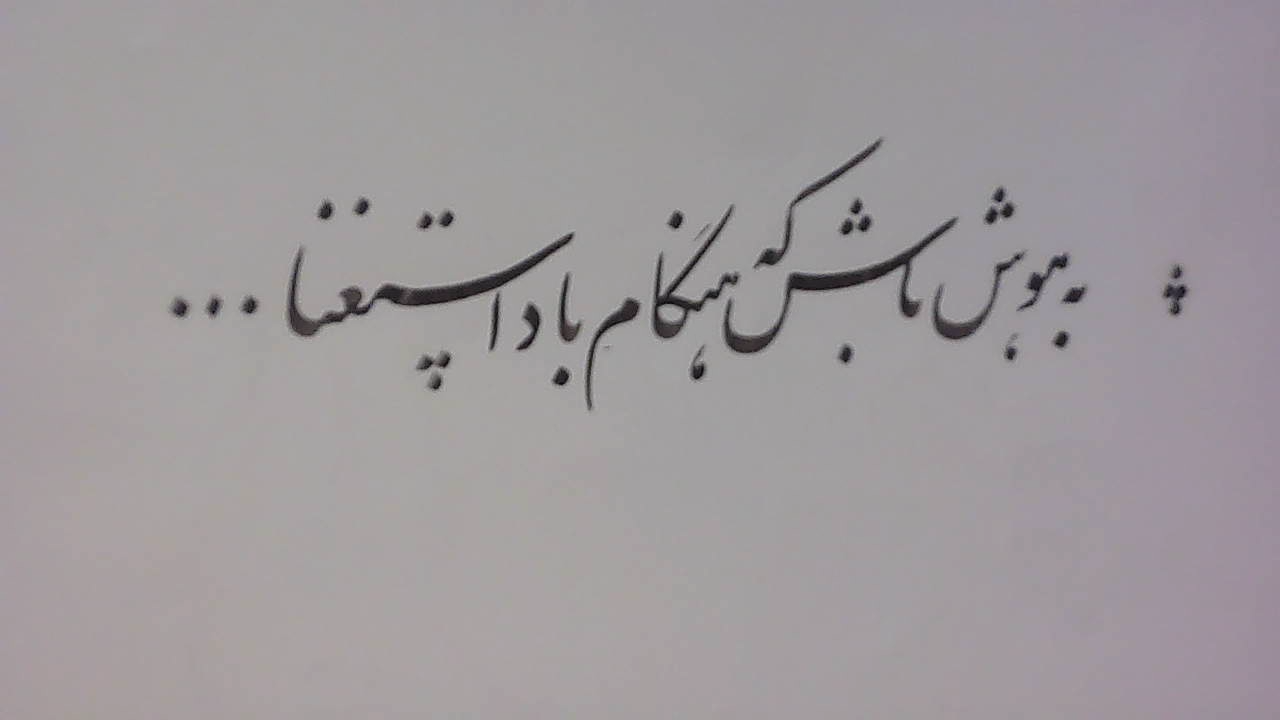 به هوش باش که هنگامِ باد استغنا ...